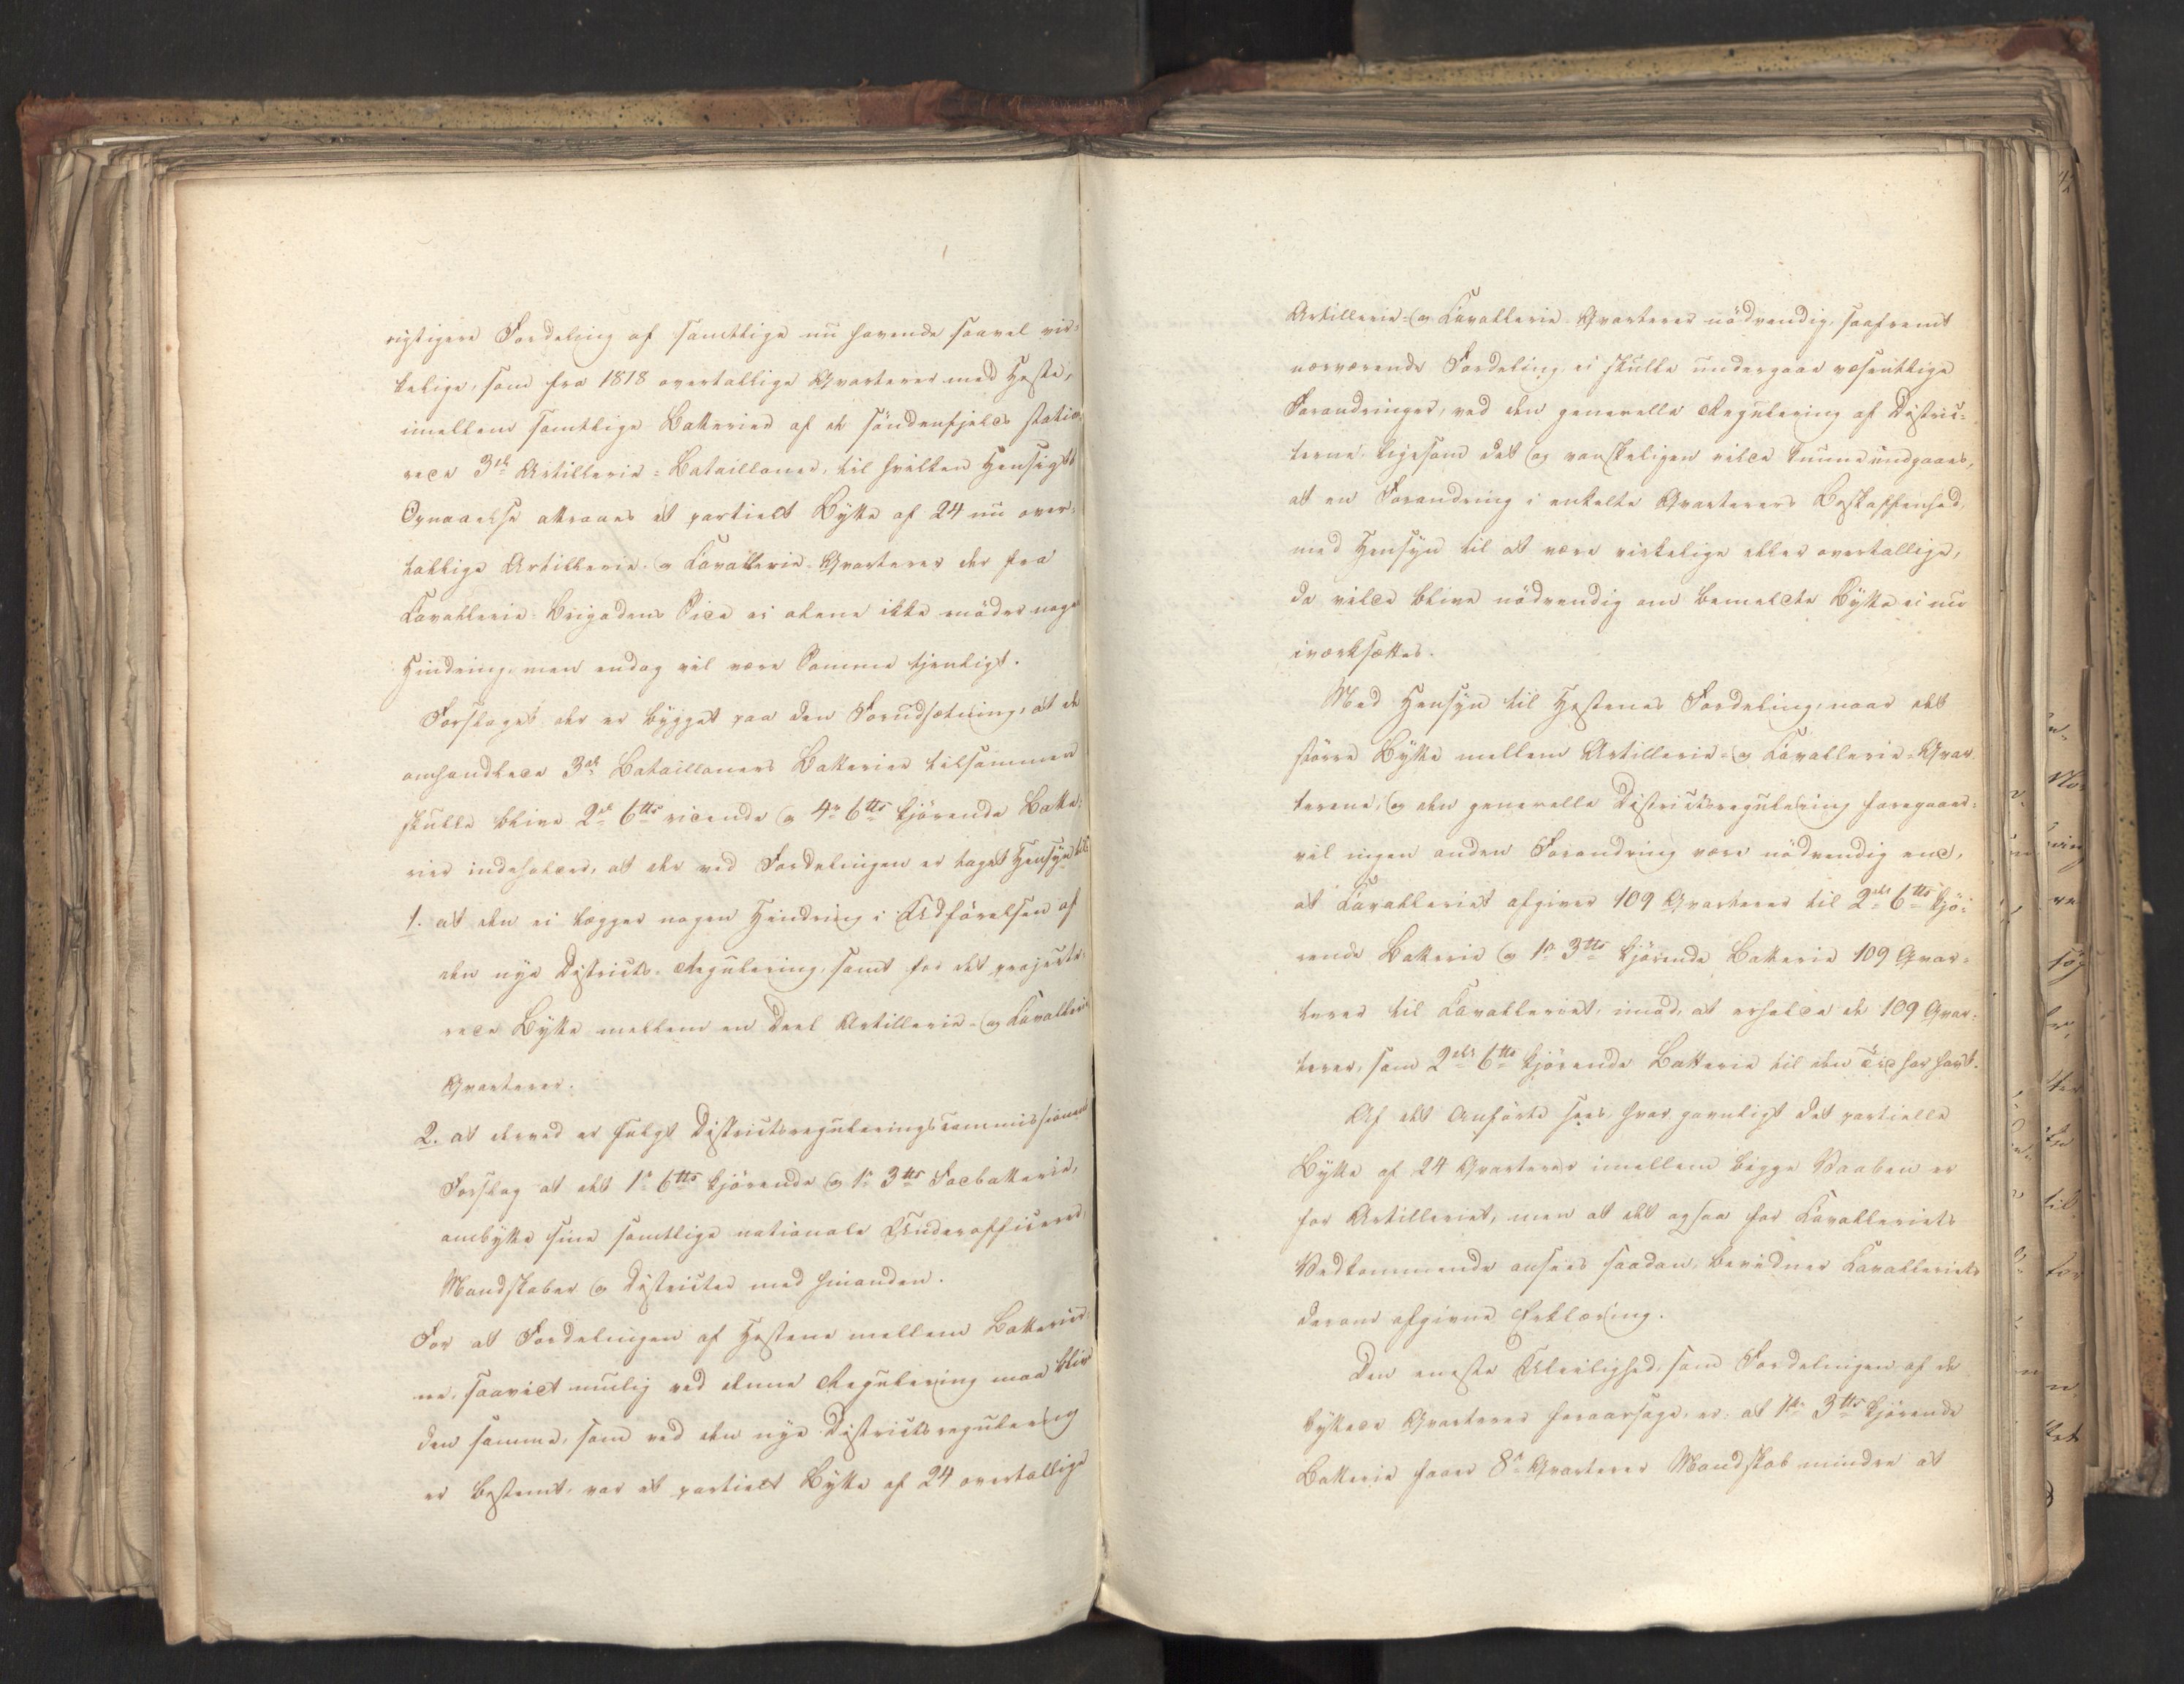 rigtigere Fordeling af samtlige nu havende saavel vir-
kelige, som fra 1818 overtallige Qvarterer med Heste,
imellem samtlige Batterier af de søndenfjelds statio-
nerede 3de Artillerie-Batailloner, til hvilken Hensigts
Opnaaelse attraaes et partielt Bytte af 24 nu over-
tallige Artillerie- og Cavallerie-Qvarterer der fra
Cavallerie-Brigadens Side ei alene ikke møder nogen
Hindring, men endog vil være Samme tjenligt.
Forslaget der er bygget paa den Forudsætning, at de
omhandlede 3de Batailloners Batterier tilsammen
skulle blive 2de 6tt ridende og 4r 6tt kjørende Batte-
rier indeholder, at der ved Fordelingen er taget Hensyn til
1. at den ei lægger nogen Hindring i Udførelsen af
den nye Districts-Regulering, samt for det projecte-
rede Bytte mellem en Deel Artillerie- og Cavallerie
Qvarterer.
2. at derved er fulgt Districtsreguleringscommissionens
Forslag at det 1e 6tts kjørende og 1e 3tts Fodbatterie,
ombytte sine samtlige nationale Underofficerer,
Mandskaber og Districter med hinanden.
For at Fordelingen af Hestene mellem Batterier-
ne, saavidt mulig ved denne Regulering maa blive
den samme, som ved den nye Districtsregulering
er bestemt, var et partielt Bytte af 24 overtallige
Artillerie- og Cavallerie-Qvarterer nødvendig, saafremt
nærværende Fordeling ei skulle undergaae væsentlige
Forandringer, ved den generelle Regulering af Distric-
terne, ligesom det og vanskeligen vilde kunne undgaaes,
at en Forandring i enkelte Qvarterers Beskaffenhed,
med Hensyn til at være virkelige eller overtallige,
da vilde blive nødvendig om bemeldte Bytte ei nu
iværksættes.
Med Hensyn til Hestenes Fordeling, naar det
større Bytte mellem Artillerie- og Cavallerie-Qvar-
terene, og den generelle Districtsregulering foregaaer,
vil ingen anden Forandring være nødvendig end,
at Cavalleriet afgiver 109 Qvarterer til 2det 6tts kjø-
rende Batterie og 1e 3tts kjørende Batterie 109 Qvar-
terer til Cavalleriet, imod, at erholde de 109 Qvar-
terer, som 2det 6tts kjørende Batterie til den Tid har havt.
Af det Anførte sees, hvor gavnligt det partielle
Bytte af 24 Qvarterer imellem begge Vaaben er
for Artilleriet, men at det ogsaa for Cavalleriets
Vedkommende ansees saadan, bevidner Cavalleriets
derom afgivne Erklæring.
Den eneste Uleilighed, som Fordelingen af de
byttede Qvarterer foraarsage, er: at 1ste 3tts kjørende
Batterie faaer 8te Qvarterer Mandskab mindre at